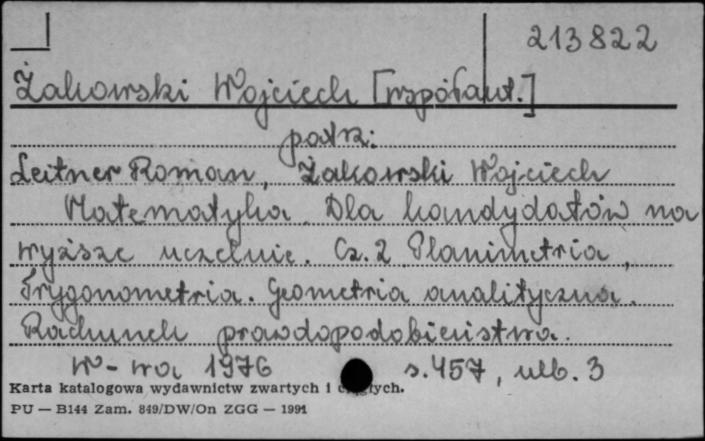 213822
Żakowski Wojciech [współaut.]
patrz:
Leitner Roman, Żakowski Wojciech
Matematyka. Dla kandydatów na
wyższe uczelnie. Cz. 2 Planimetria,
Trygonometria. Geometria analityczna.
Rachunek prawdopodobieństwa.
W-wa 1976 s. 457, nlb. 3
Karta katalogowa wydawnictw zwartych i ciągłych.
PU — B144 Zam. 849/DW/On ZGG — 1991